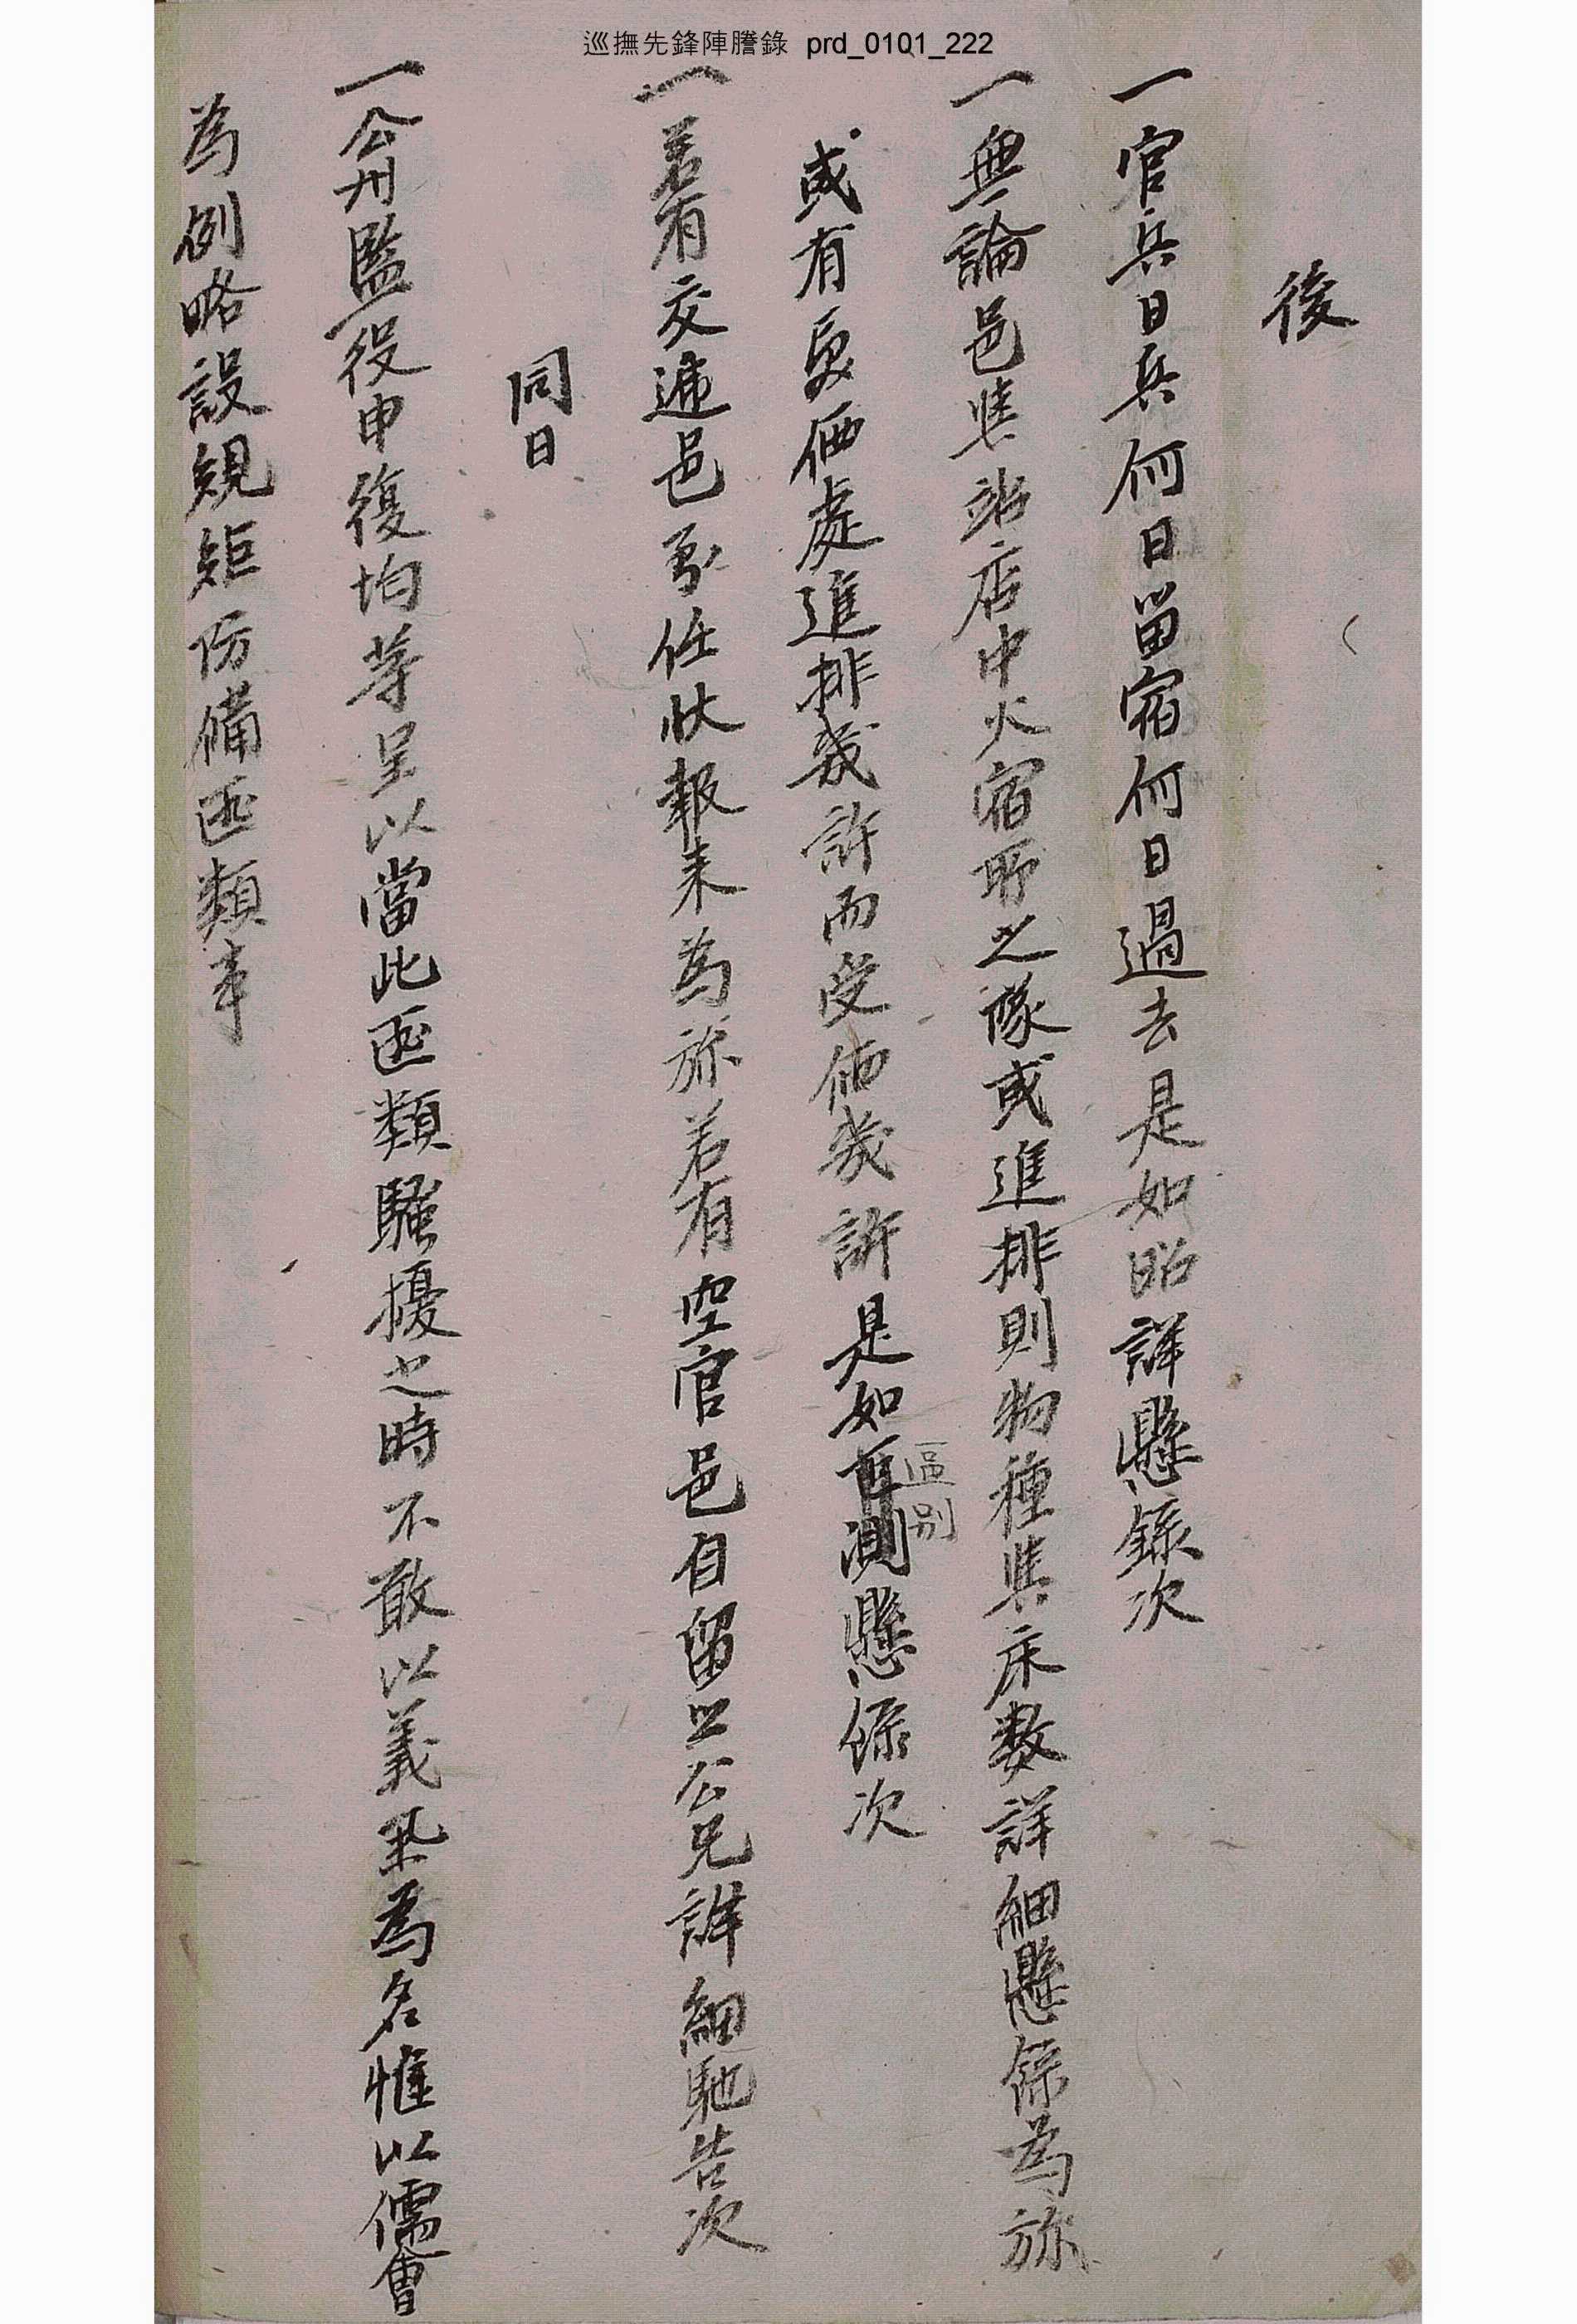 巡撫先鋒陣謄錄 prd_0101_222
後
一官兵日兵何日留宿何日過去是如昭詳懸錄次
一無論邑隼站店中火宿所之隊或進排則物種隼床數詳細懸錄為旀
或有良価處進排幾許而受価幾許是如區別懸錄次
一若有交遞邑承任狀報來為旀若有空官邑自留公兄詳細馳告次
同日
一公州監役申復均等呈以當此匪類騷擾之時不敢以義兵為名惟以儒會
為例略設規矩防備匪類事